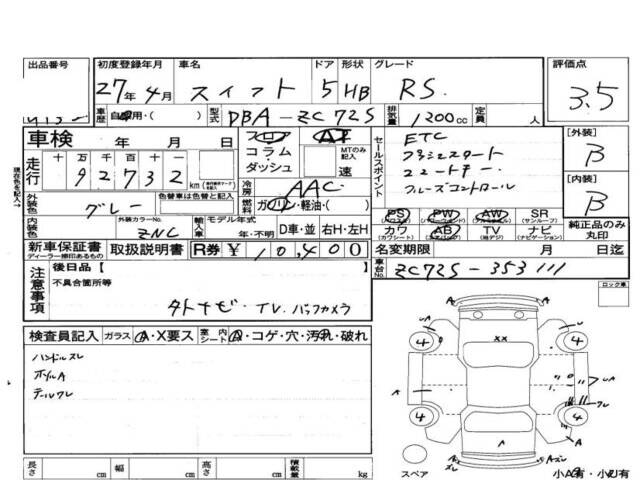 出品番号 初度登録年月 車名 ドア 形状 グレード 評価点
27年4月 スイフト 5 HB RS 3.5
車歴 自家用・( ) 型式 DBA-ZC72S 排気量 1200cc 定員 人
車検 年 月 日 フロア コラム・ダッシュ AT MTのみ記入 速
セールスポイント ETC
プッシュスタート
スマートキー
クルーズコントロール
[外装] B
[内装] B
現在色を記入→
走行 十万千百十一 92732 km
冷房 AAC
外装色 グレー 色替車は色替と記入 燃料 ガソリン・軽油・( )
内装色 外装カラーNo. ZNC 輸入車 モデル年式 年・不明 D車・並 右H・左H
PS PW AW SR(サンルーフ)
カワ(カワシート) AB(エアバッグ) TV(地デジ) ナビ(ナビゲーション) 純正品のみ丸印
新車保証書 ディーラー捺印あるもの 取扱説明書 R券 ¥ 10,400
名変期限 月 日迄
車台No. ZC72S-353111
注意事項 後日品【 】
不具合箇所等
タトナビ・TV・バックカメラ
ロック車
検査員記入 ガラス Ⓐ・X要ス 室内シート Ⓐ・コゲ・穴・汚れ・破れ
ハンドルスレ
ボルA
テールワレ
4 4
4 4
XX
A
A
スペア
小A有・小U有
長さ cm 幅 cm 高さ cm 積載量 kg